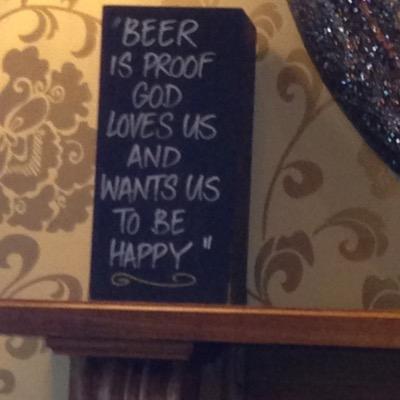 "BEER
IS PROOF
GOD
LOVES US
AND
WANTS US
TO BE
HAPPY"